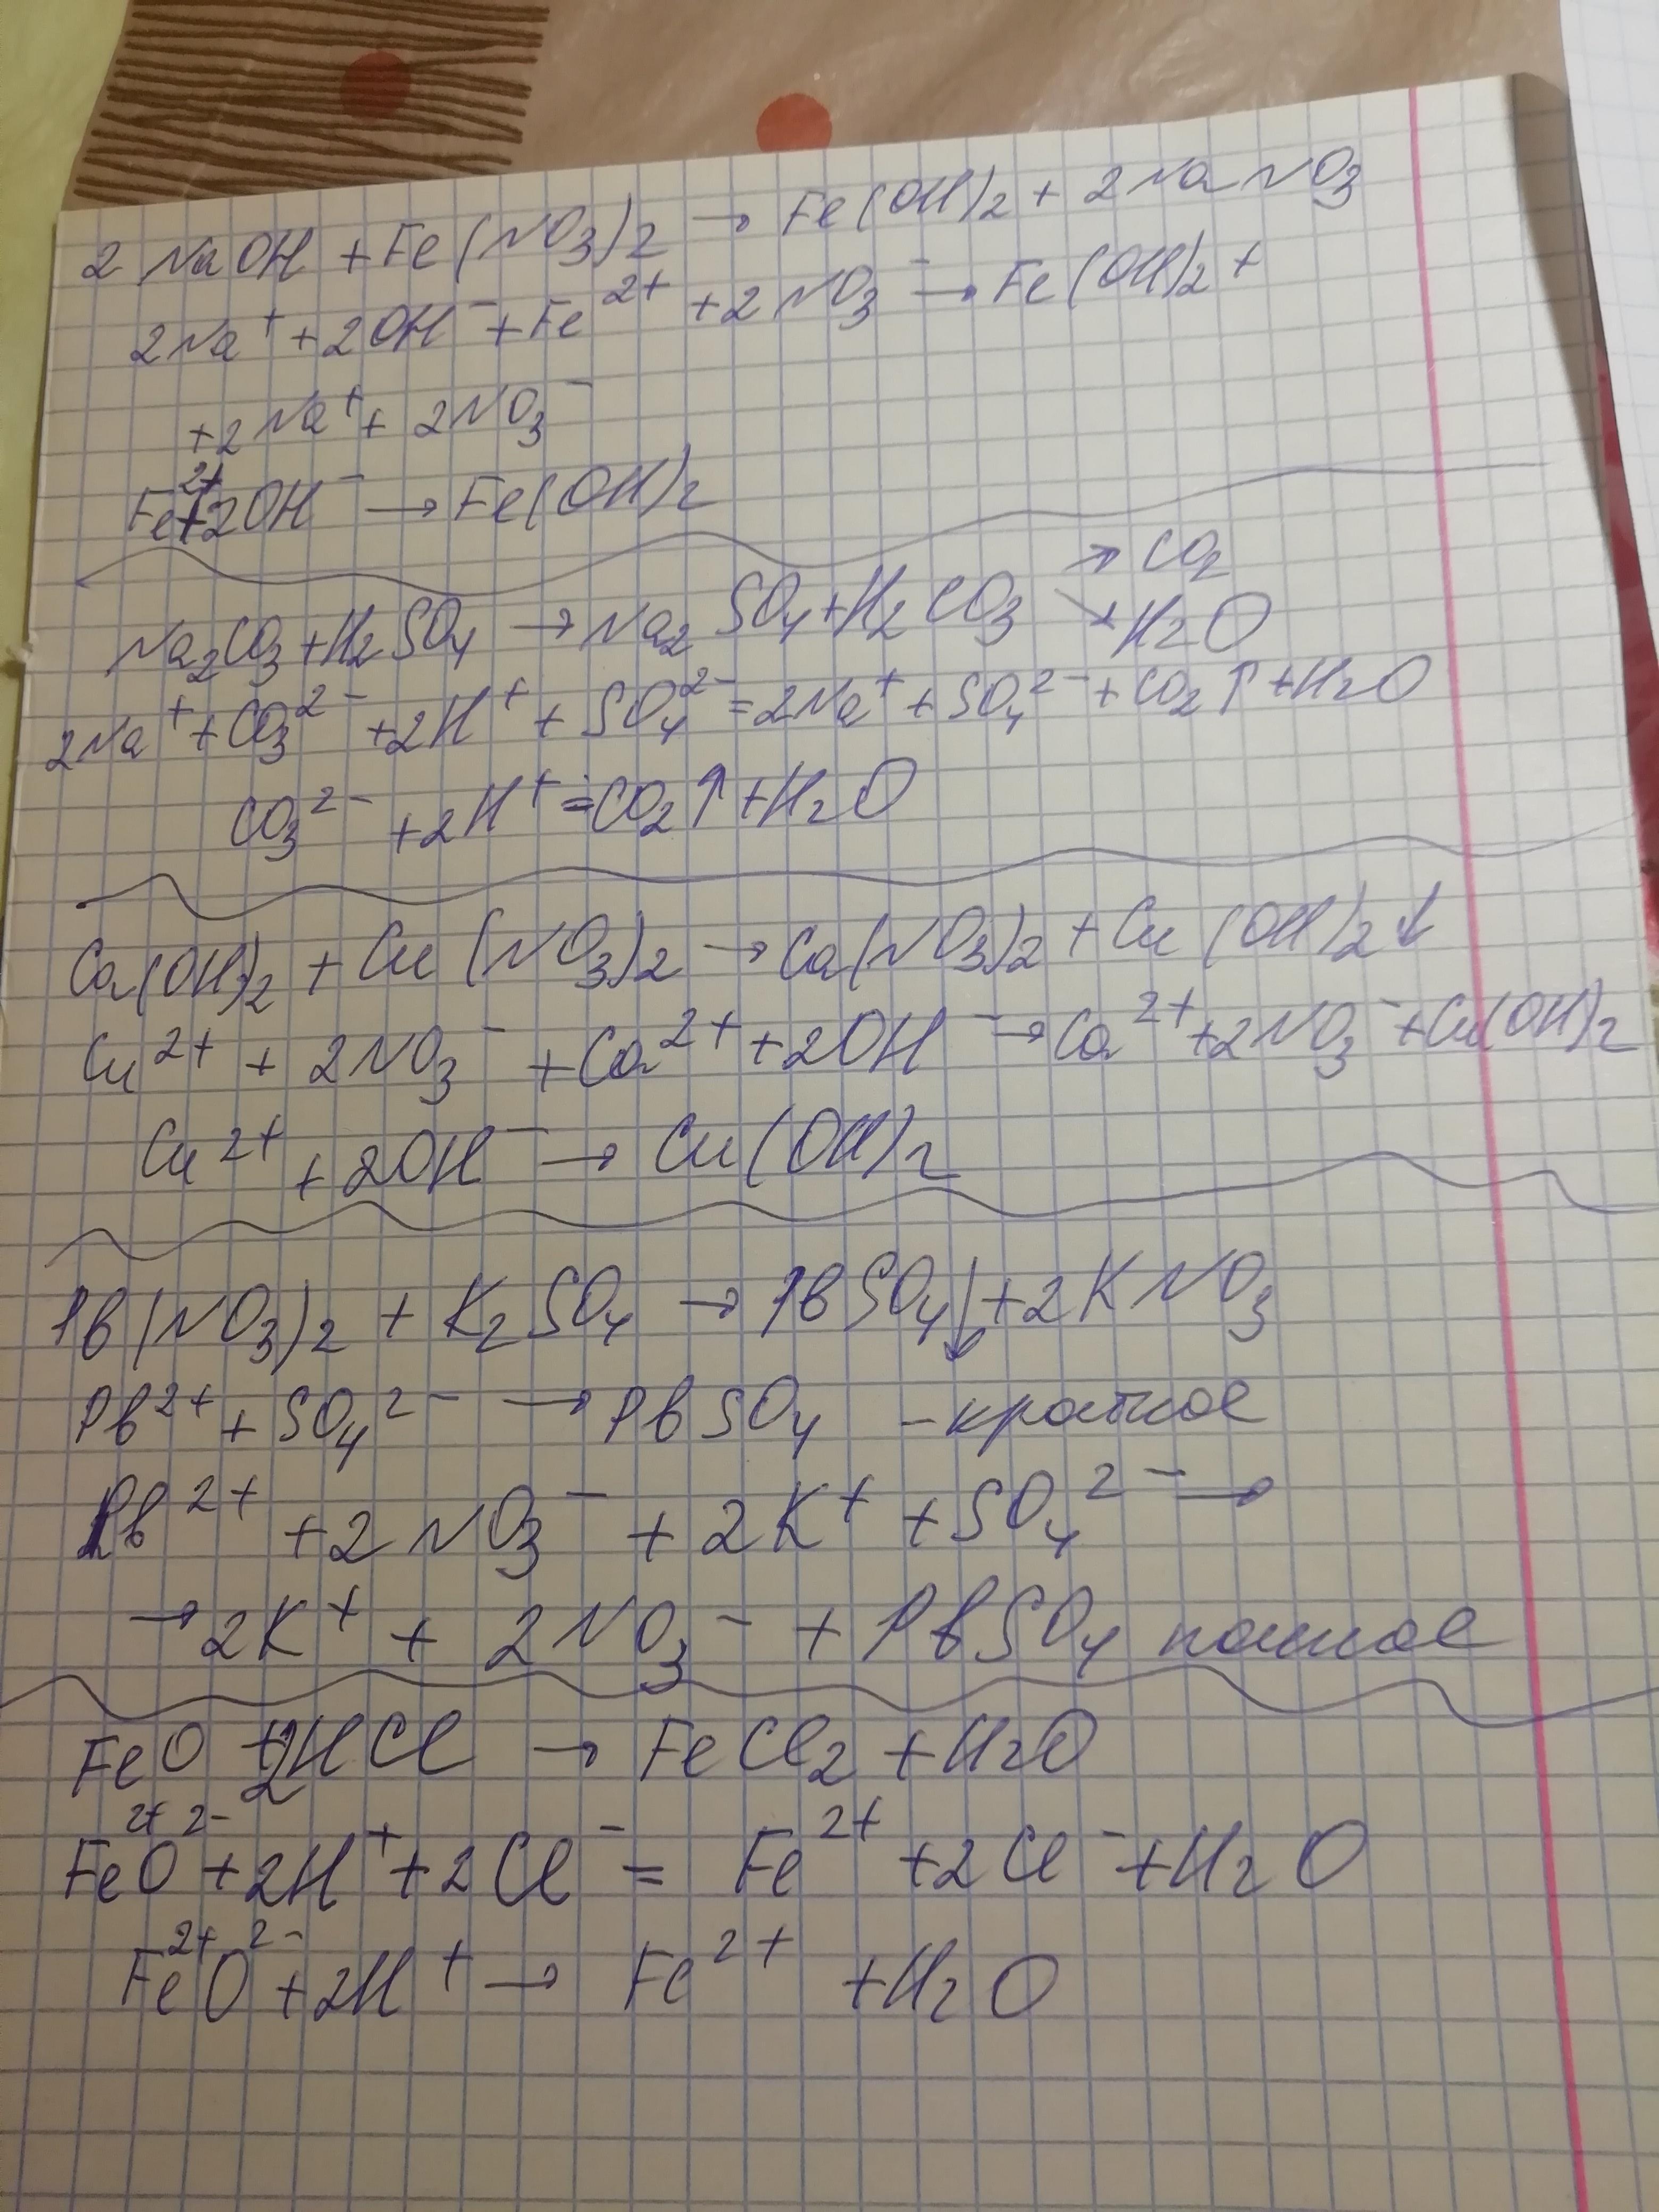 2 NaOH + Fe(NO₃)₂ → Fe(OH)₂ + 2NaNO₃
2Na⁺ + 2OH⁻ + Fe²⁺ + 2NO₃⁻ → Fe(OH)₂ +
+2Na⁺ + 2NO₃⁻
Fe²⁺+2OH⁻ → Fe(OH)₂
Na₂CO₃ + H₂SO₄ → Na₂SO₄ + H₂CO₃ → CO₂
→ H₂O
2Na⁺ + CO₃²⁻ + 2H⁺ + SO₄²⁻ = 2Na⁺ + SO₄²⁻ + CO₂↑ + H₂O
CO₃²⁻ + 2H⁺ = CO₂↑ + H₂O
Ca(OH)₂ + Cu(NO₃)₂ → Ca(NO₃)₂ + Cu(OH)₂↓
Cu²⁺ + 2NO₃⁻ + Ca²⁺ + 2OH⁻ → Ca²⁺ + 2NO₃⁻ + Cu(OH)₂
Cu²⁺ + 2OH⁻ → Cu(OH)₂
Pb(NO₃)₂ + K₂SO₄ → PbSO₄↓ + 2KNO₃
Pb²⁺ + SO₄²⁻ → PbSO₄ - краткое
Pb²⁺ + 2NO₃⁻ + 2K⁺ + SO₄²⁻ →
→ 2K⁺ + 2NO₃⁻ + PbSO₄ полное
FeO + 2HCl → FeCl₂ + H₂O
Fe²⁺O²⁻ + 2H⁺ + 2Cl⁻ = Fe²⁺ + 2Cl⁻ + H₂O
Fe²⁺O²⁻ + 2H⁺ → Fe²⁺ + H₂O